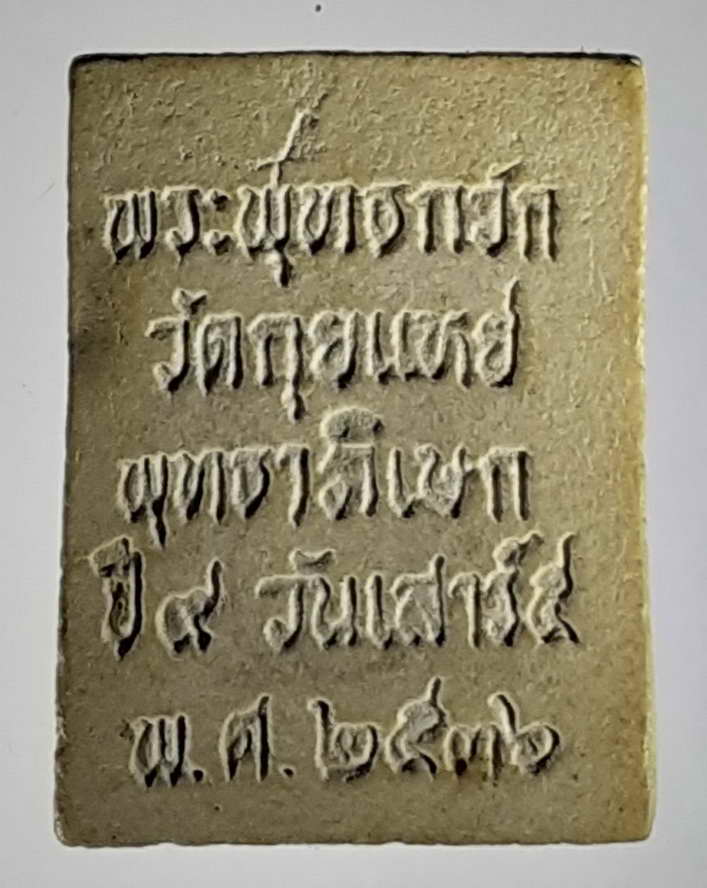 พระพุ่ทธกวัก
วัดกุยแหย่
พุทธาภิเษก
ปี ๙ วันเสาร์ ๕
พ.ศ. ๒๕๓๖